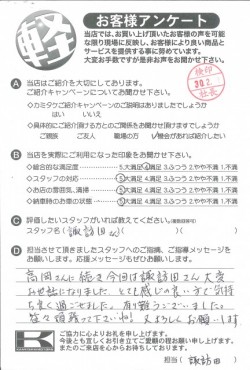 軽
お客様アンケート
当店では、お買い上げ頂いたお客様の声を可能
な限り現場に反映し、お客様により良い商品と
サービスを提供する事に努めています。
大変お手数ですが是非お声をお聞かせ下さい。
検印
社長
A 当店はご紹介を大切にしております。
ご紹介キャンペーンについてお聞かせ下さい。
◇カミタケご紹介キャンペーンのご説明はありましたでしょうか
はい いいえ
◇具体的にご紹介頂ける方とのご関係をお聞かせ頂けますでしょうか
ご親族 ご友人 職場の方 機会があれば紹介したい
B 当店を実際にご利用になった印象をお聞かせ下さい。
◇総合的な満足度 5.大満足 4.満足 3.ふつう 2.やや不満 1.不満
◇スタッフの対応 5.大満足 4.満足 3.ふつう 2.やや不満 1.不満
◇お店の雰囲気、清掃 5.大満足 4.満足 3.ふつう 2.やや不満 1.不満
◇納車時のお車の状態 5.大満足 4.満足 3.ふつう 2.やや不満 1.不満
C 評価したいスタッフがいれば教えてください。
スタッフ名( 諏訪田さん )
D 担当させて頂きましたスタッフへのご指摘、ご指導メッセージを
お願いします。応援メッセージもぜひお聞かせください。
高岡さんに続き今回は諏訪田さん大変
お世話になりました。とても感じの良い方で気持
ち良く過ごせました。有り難うございました。
K
ご協力に心よりお礼を申し上げます。
今後とも宜しくお引き立てご愛顧の程お願い申し上げます。
またのご来店を心からお待ちしております。
担当( 諏訪田 )